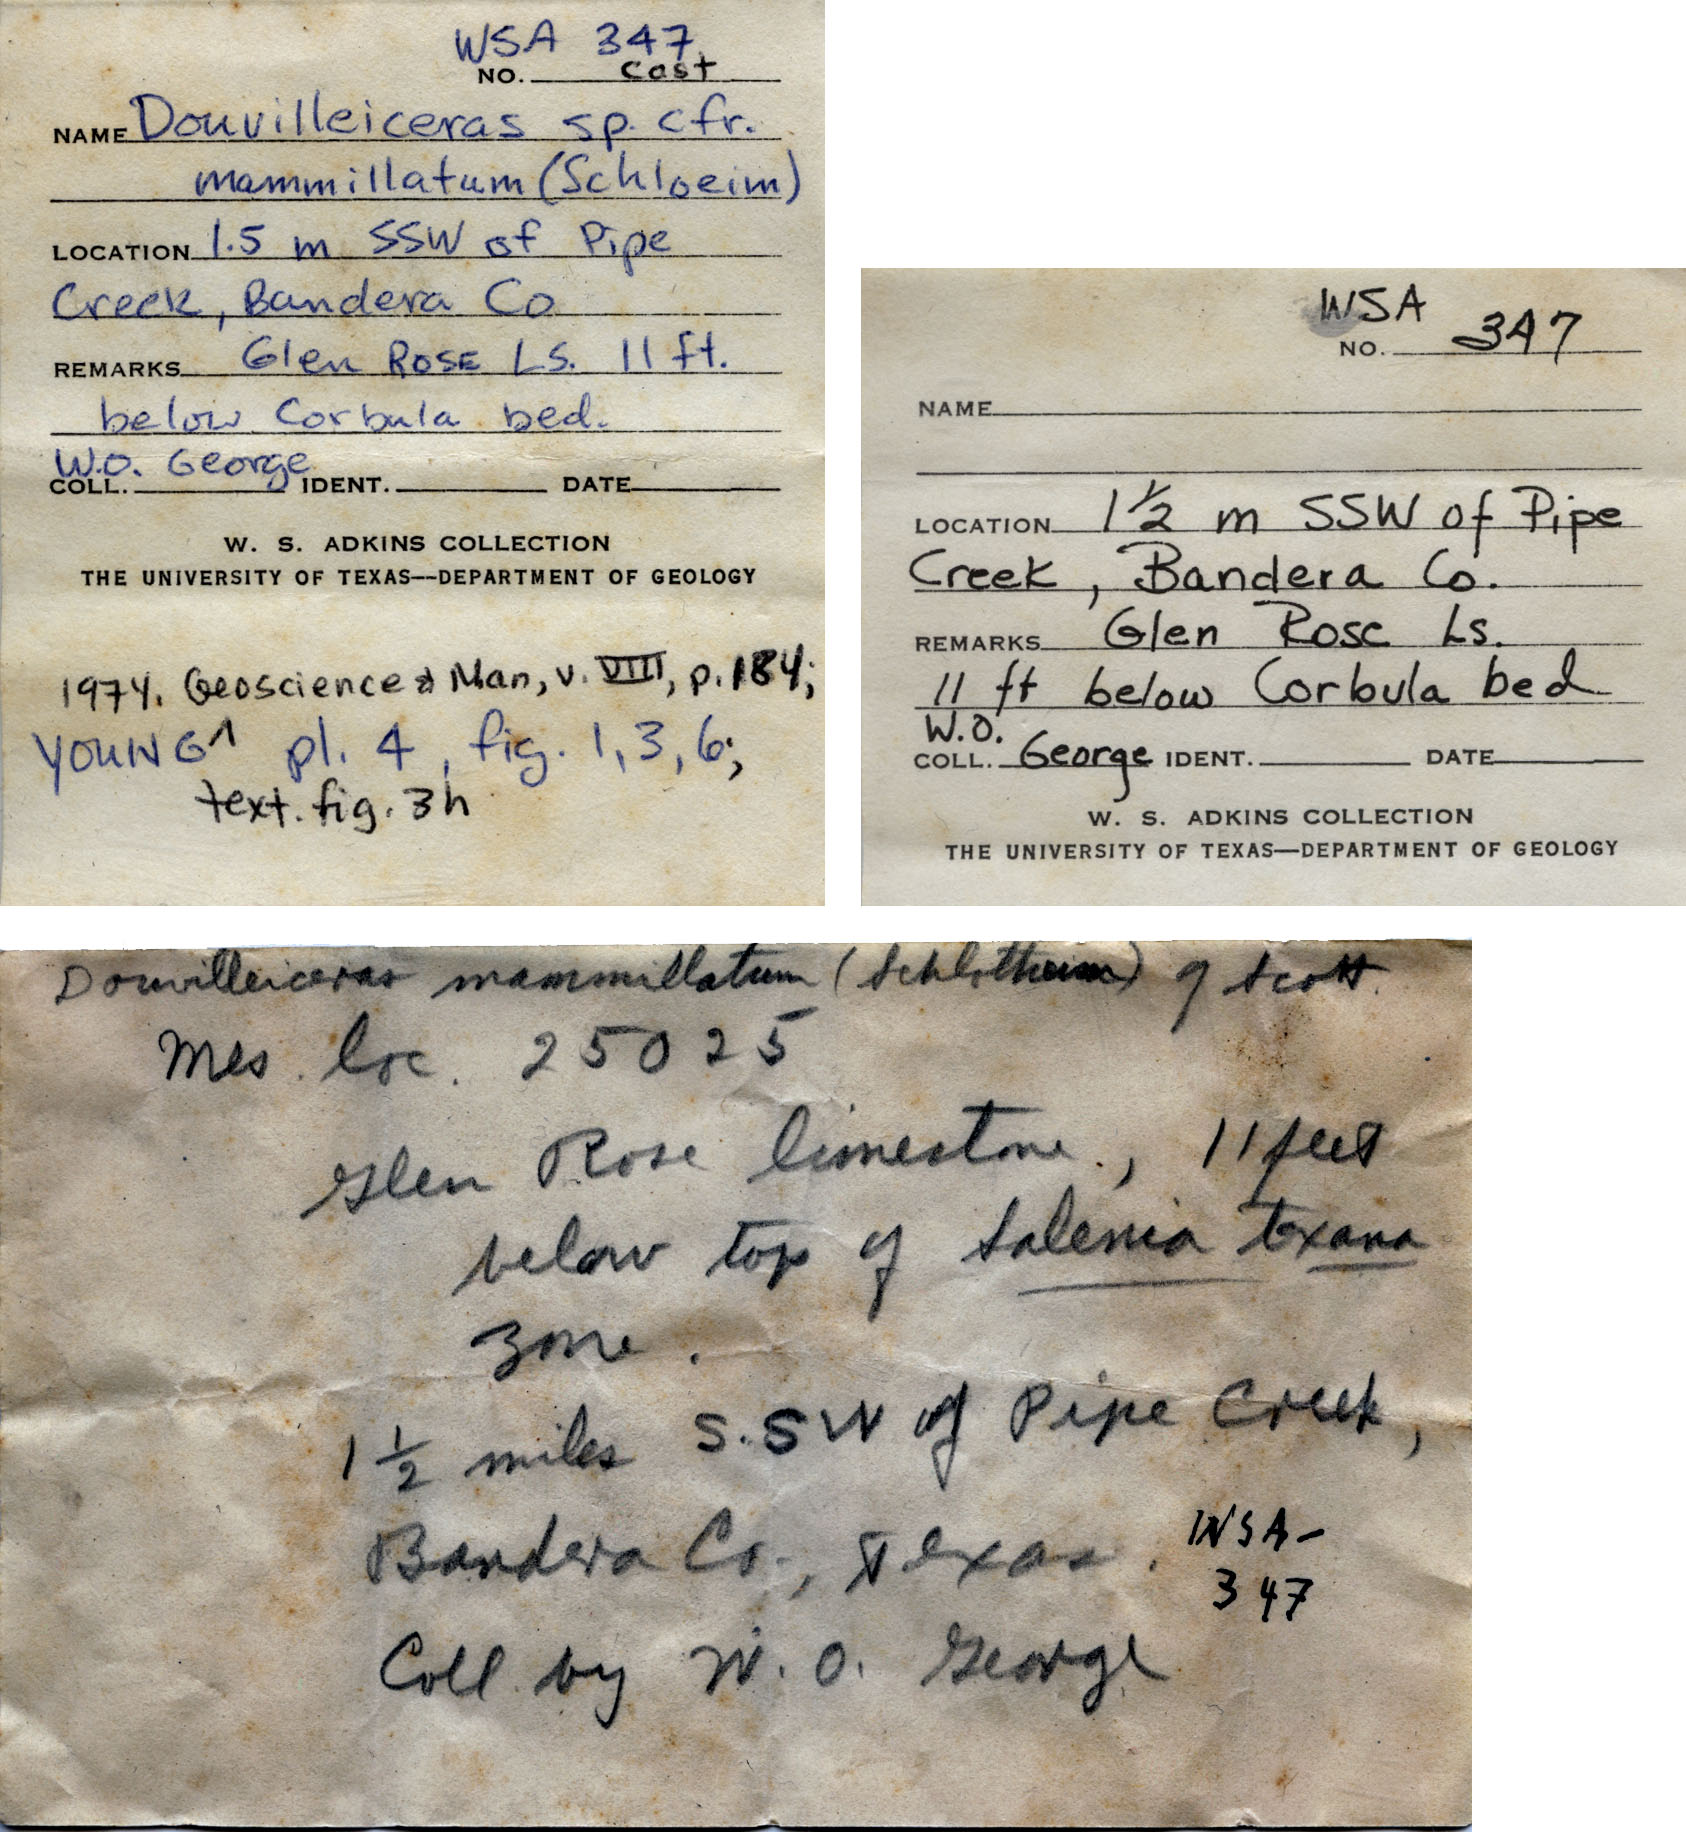 WSA 347
NO. Cast
NAME Douvilleiceras sp. cfr.
mammillatum (Schloeim)
LOCATION 1.5 m SSW of Pipe
Creek, Bandera Co
REMARKS Glen Rose Ls. 11 ft.
below Corbula bed.
W.O. George
COLL. IDENT. DATE
W. S. ADKINS COLLECTION
THE UNIVERSITY OF TEXAS--DEPARTMENT OF GEOLOGY
1974. Geoscience & Man, v. VIII, p. 184;
YOUNG ^ pl. 4, fig. 1, 3, 6;
text. fig. 3h
WSA
NO. 347
NAME
LOCATION 1 1/2 m SSW of Pipe
Creek, Bandera Co.
REMARKS Glen Rose Ls.
11 ft below Corbula bed
W.O.
COLL. George IDENT. DATE
W. S. ADKINS COLLECTION
THE UNIVERSITY OF TEXAS—DEPARTMENT OF GEOLOGY
Douvilleiceras mammillatum (Schlotheim) of Scott.
Mes. loc. 25025
Glen Rose limestone, 11 feet
below top of Salenia texana
zone.
1 1/2 miles S.SW of Pipe Creek,
Bandera Co., Texas.
WSA-
347
Coll by W. O. George